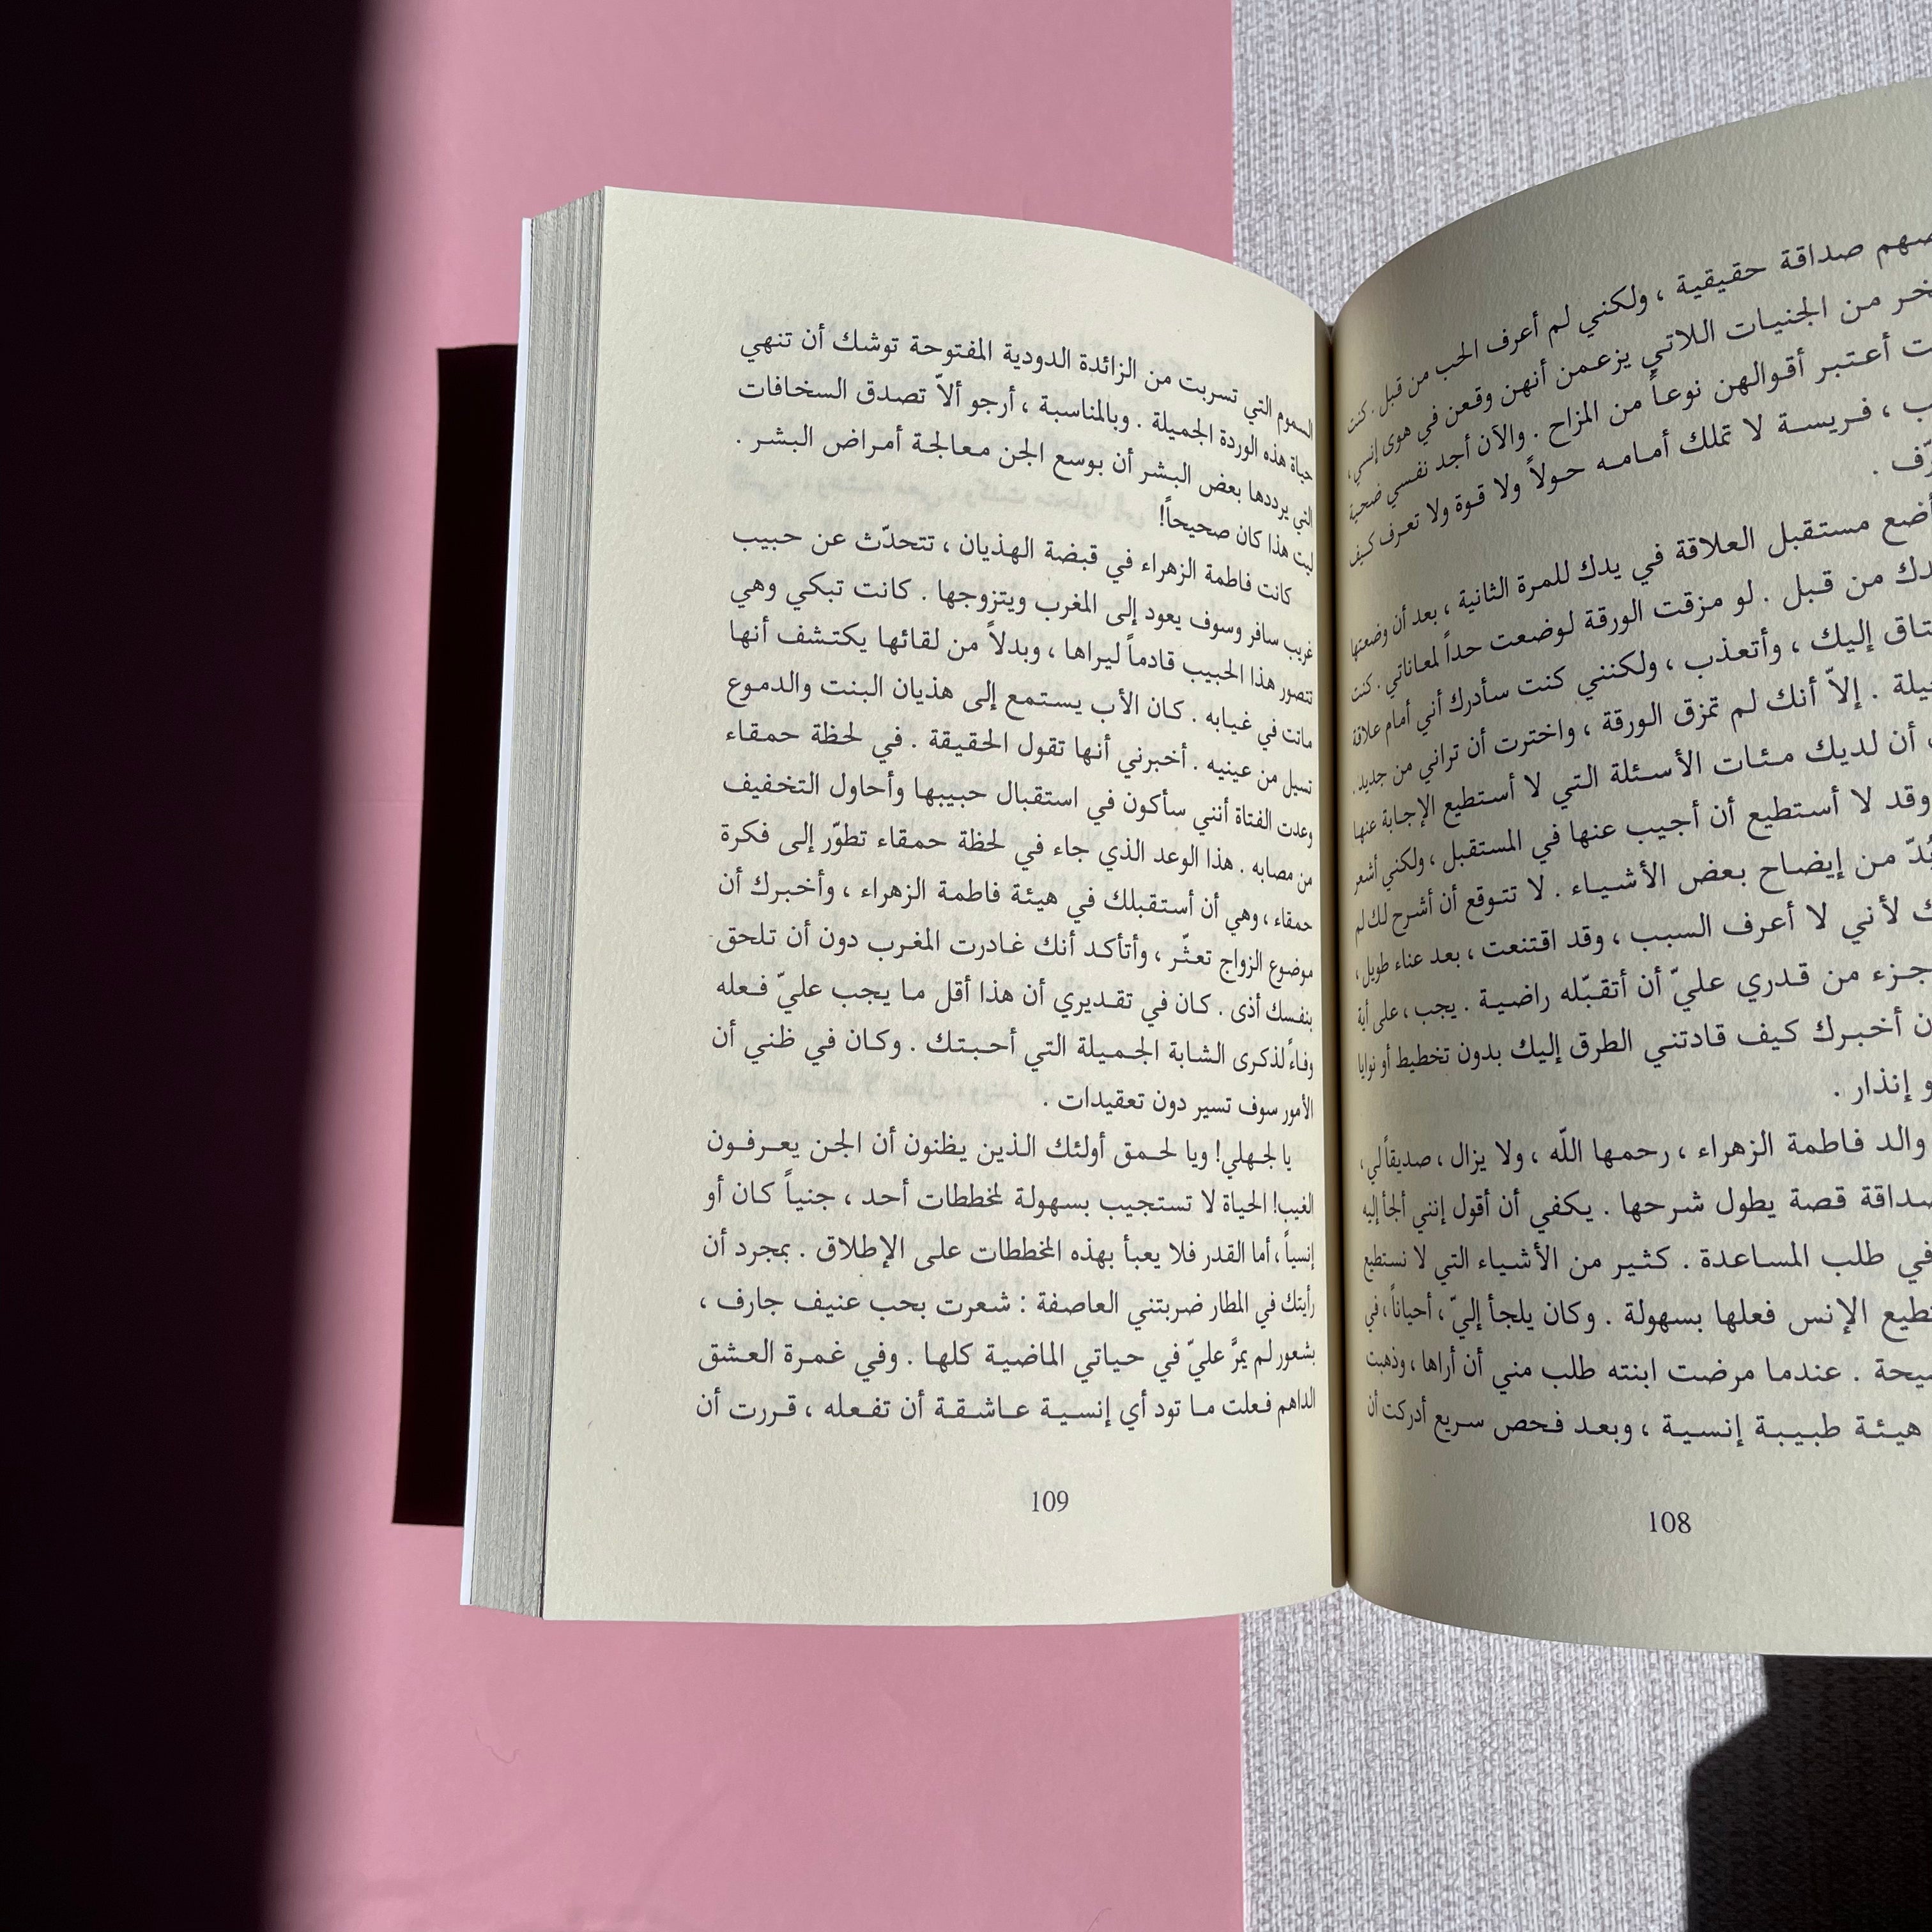 صداقة حقيقية ، ولكني لم أعرف الحب من قبل . كنت
من الجنيات اللاتي يزعمن أنهن وقعن في هوى إنسي ،
أعتبر أقوالهن نوعاً من المزاح . والآن أجد نفسي ضحية
، فريسة لا تملك أمامه حولاً ولا قوة ولا تعرف كيف
.
مستقبل العلاقة في يدك للمرة الثانية ، بعد أن وضعتها
من قبل . لو مزقت الورقة لوضعت حداً لمعاناتي . كنت
إليك ، وأتعذب ، ولكنني كنت سأدرك أني أمام علاقة
. إلاّ أنك لم تمزق الورقة ، واخترت أن تراني من جديد .
أن لديك مئات الأسئلة التي لا أستطيع الإجابة عنها
وقد لا أستطيع أن أجيب عنها في المستقبل ، ولكني أشعر
من إيضاح بعض الأشياء . لا تتوقع أن أشرح لك لم
لأني لا أعرف السبب ، وقد اقتنعت ، بعد عناء طويل ،
جزء من قدري عليّ أن أتقبّله راضية . يجب ، على أية
أخبرك كيف قادتني الطرق إليك بدون تخطيط أو نوايا
إنذار .
والد فاطمة الزهراء ، رحمها اللّه ، ولا يزال ، صديقاً لي ،
قصة يطول شرحها . يكفي أن أقول إنني ألجأ إليه
في طلب المساعدة . كثير من الأشياء التي لا نستطيع
الإنس فعلها بسهولة . وكان يلجأ إليّ ، أحياناً ، في
. عندما مرضت ابنته طلب مني أن أراها ، وذهبت
هيئة طبيبة إنسية ، وبعد فحص سريع أدركت أن
108
السموم التي تسربت من الزائدة الدودية المفتوحة توشك أن تنهي
حياة هذه الوردة الجميلة . وبالمناسبة ، أرجو ألاّ تصدق السخافات
التي يرددها بعض البشر أن بوسع الجن معالجة أمراض البشر .
ليت هذا كان صحيحاً!
كانت فاطمة الزهراء في قبضة الهذيان ، تتحدّث عن حبيب
غريب سافر وسوف يعود إلى المغرب ويتزوجها . كانت تبكي وهي
تتصور هذا الحبيب قادماً ليراها ، وبدلاً من لقائها يكتشف أنها
ماتت في غيابه . كان الأب يستمع إلى هذيان البنت والدموع
تسيل من عينيه . أخبرني أنها تقول الحقيقة . في لحظة حمقاء
وعدت الفتاة أنني سأكون في استقبال حبيبها وأحاول التخفيف
من مصابه . هذا الوعد الذي جاء في لحظة حمقاء تطوّر إلى فكرة
حمقاء ، وهي أن أستقبلك في هيئة فاطمة الزهراء ، وأخبرك أن
موضوع الزواج تعثّر ، وأتأكد أنك غادرت المغرب دون أن تلحق
بنفسك أذى . كان في تقديري أن هذا أقل ما يجب عليّ فعله
وفاءً لذكرى الشابة الجميلة التي أحبتك . وكان في ظني أن
الأمور سوف تسير دون تعقيدات .
يا لجهلي! ويا لحمق أولئك الذين يظنون أن الجن يعرفون
الغيب! الحياة لا تستجيب بسهولة لمخططات أحد ، جنياً كان أو
إنسياً ، أما القدر فلا يعبأ بهذه المخططات على الإطلاق . بمجرد أن
رأيتك في المطار ضربتني العاصفة : شعرت بحب عنيف جارف ،
بشعور لم يمرَّ عليّ في حياتي الماضية كلها . وفي غمرة العشق
الداهم فعلت ما تود أي إنسية عاشقة أن تفعله ، قررت أن
109